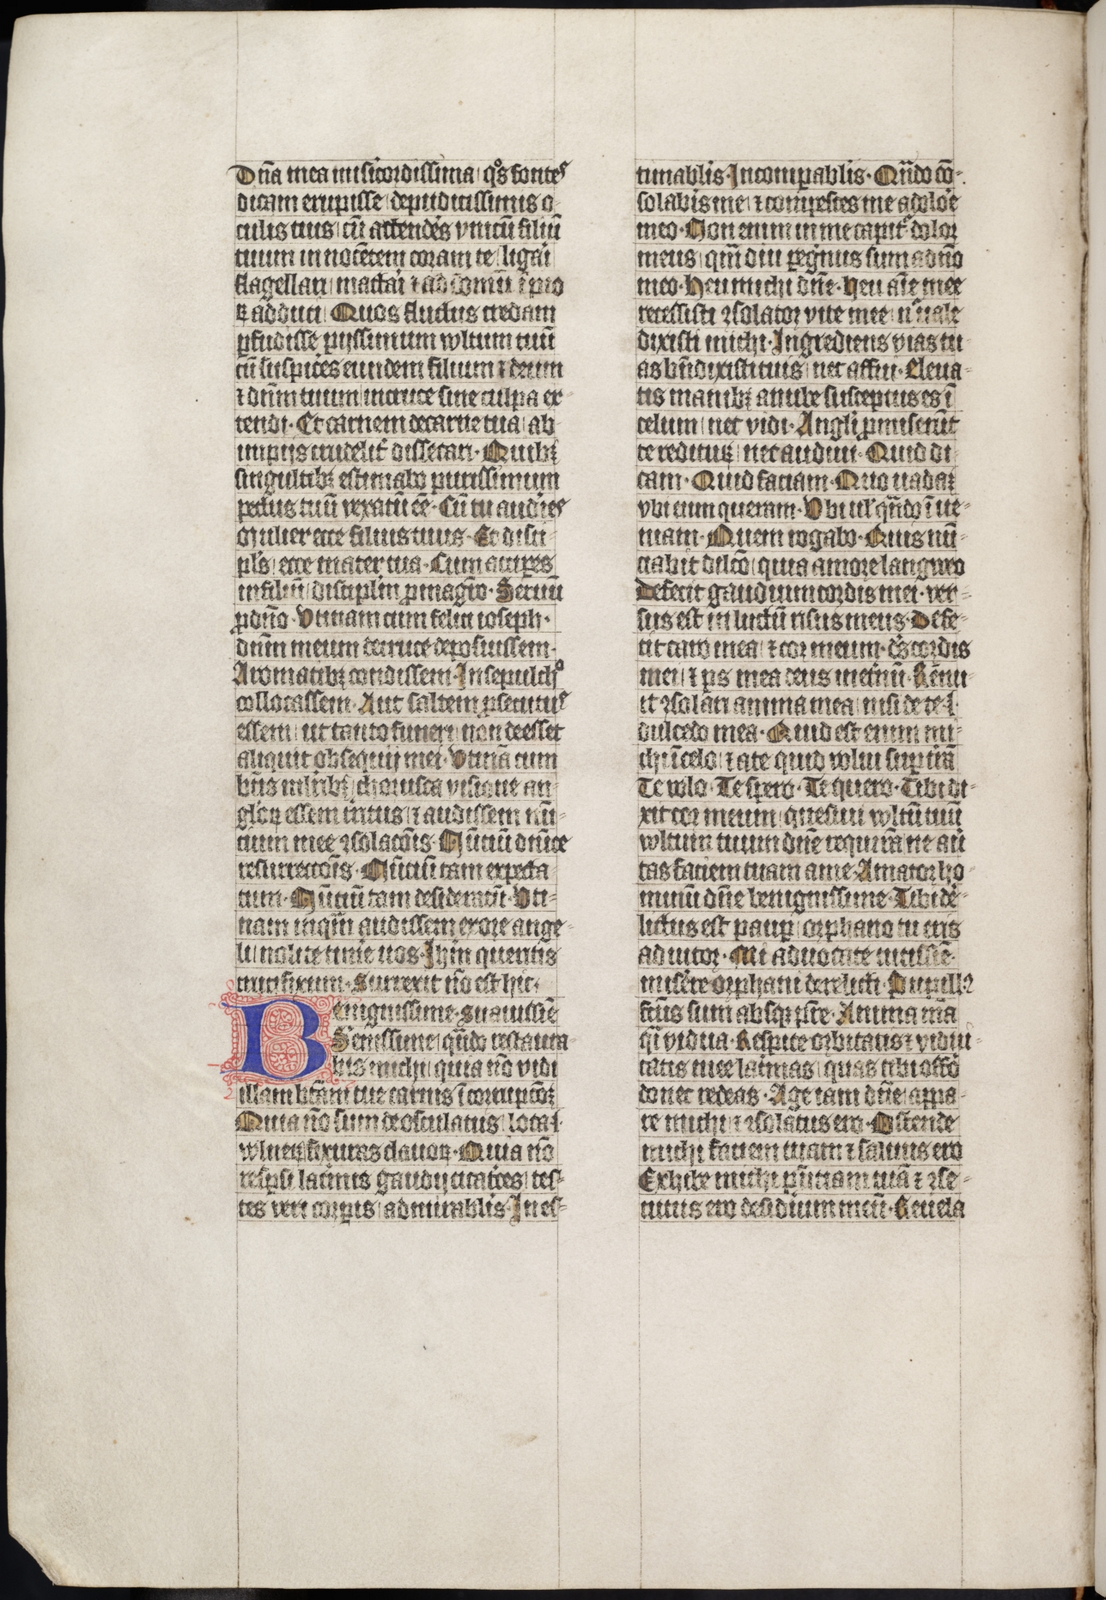 Dn̄a mea misicordissima qͦs fontes
dicam erupisse de pudicissimis o-
culis tuis cū attendēs vnicū filiū
tuum in nocētem coram te ligāi
flagellari mactāi
adduci Quos fluctus credam
ꝑfudisse piissimum vultum tuū
cū suspices eundem filium ⁊ deum
⁊ dn̄m tuum in cruce sine culpa ex
tendi· Et carnem de carne tua ab
impiis crudelit̄ dissecari· Quibꝫ
singultibꝫ estimabo purissimum
pectus tuū vexatū ēē· Cū tu audies
Mulier ecce filius tuus· Et disci-
pl̄s ecce mater tua· Cum accipes
in filiū discipl̄m ꝓ mag̅ro· Seruū
ꝓ dn̄o· Vtinam cum felici ioseph·
dn̄m meum de cruce deposuissem·
Aromatibꝫ condissem· In sepulch͛o
collocassem· Aut saltem ꝑsecutus
essem ut tanto funeri non deesset
aliquit obsequij mei· Vtinā cum
bt̄is mlr̄ibꝫ chorusca visione an-
gloꝝ essem tritus ⁊ audissem nū-
cium mee ꝯsolacōis· Nūciū dn̄ice
resurreccōis· Nūciū tam expecta
tum· Nūciū tam desideratū· Vti-
nam inqͣm audissem ex ore ange-
li nolite tim̄e uos· Ihm̄ queritis
crucifixum· Surrexit nō est hic·
Benignissime· Suauissīe
Serenissime qn̄do restaura-
bis michi quia nō vidi
illam btām tue carnis īcorrupcōeꝫ
Quia nō sum deosculatus loca
vulneꝝ fixuras clauoꝝ· Quia nō
resꝑsi lacͥmis gaudij cicatͥces tes-
tes veri corꝑis admirablis· Ines-
timablis· Incomꝑablis· Qn̄do cō-
solabis me ⁊ compesces me a dolor̄e
meo· Non enim in me capit̄ dolor
meus qm̄ diu ꝑegͥnus sum a dn̄o
meo· Heu michi dn̄e· heu aīe mee
recessisti ꝯsolator vite mee n̄ uale
dixisti michi· Ingrediens vias tu
as bn̄dixisti tuis nec affui· Eleua-
tis manibꝫ a nube susceptus es ī
celum nec vidi· Angli ꝓmiserūt
te rediturꝫ nec audiui· Quid di
cam· Quid faciam· Quo uadaꝫ
vbi eum queram· Vbi ul̓ qn̄do īue-
niam· Quem rogabo· Quis nū-
ciabit dil̄co quia amore langueo
Defecit gaudium cordis mei· ver-
sus est in luctū risus meus· Defe-
cit caro mea ⁊ cor meum· ds̄ cordis
mei ⁊ ps̄ mea deus in et̄nū· Rēnu-
it ꝯsolari anima mea nisi de te
dulcedo mea· Quid est enim mi-
chi ī celo ⁊ a te quid volui suꝑ t̄rā
Te volo· Te spero· Te quero· Tibi di-
xit cor meum quesiui vultū tuū
vultum tuum dn̄e requirā ne au̓
tas faciem tuam a me· Amator ho
minū dn̄e benignissime· Tibi de-
lictus est pauꝑ orphano tu eris
adiutor· Mi aduocate tutissīe·
misēre orphani derelicti· Pupill9
fc̄us sum absqꝫ pr̄e· Anima mā
qͣi vidua· Respice orbitatis ⁊ vidui-
tatis mee lacͥmas quas tibi offō
donec redeas· Age iam dn̄e appa-
re michi ⁊ ꝯsolatus ero· Ostende
michi faciem tuam ⁊ saluus ero
Exhibe michi pn̄ciam tuā ⁊ ꝯse-
cutus ero desidium meū· Reuela